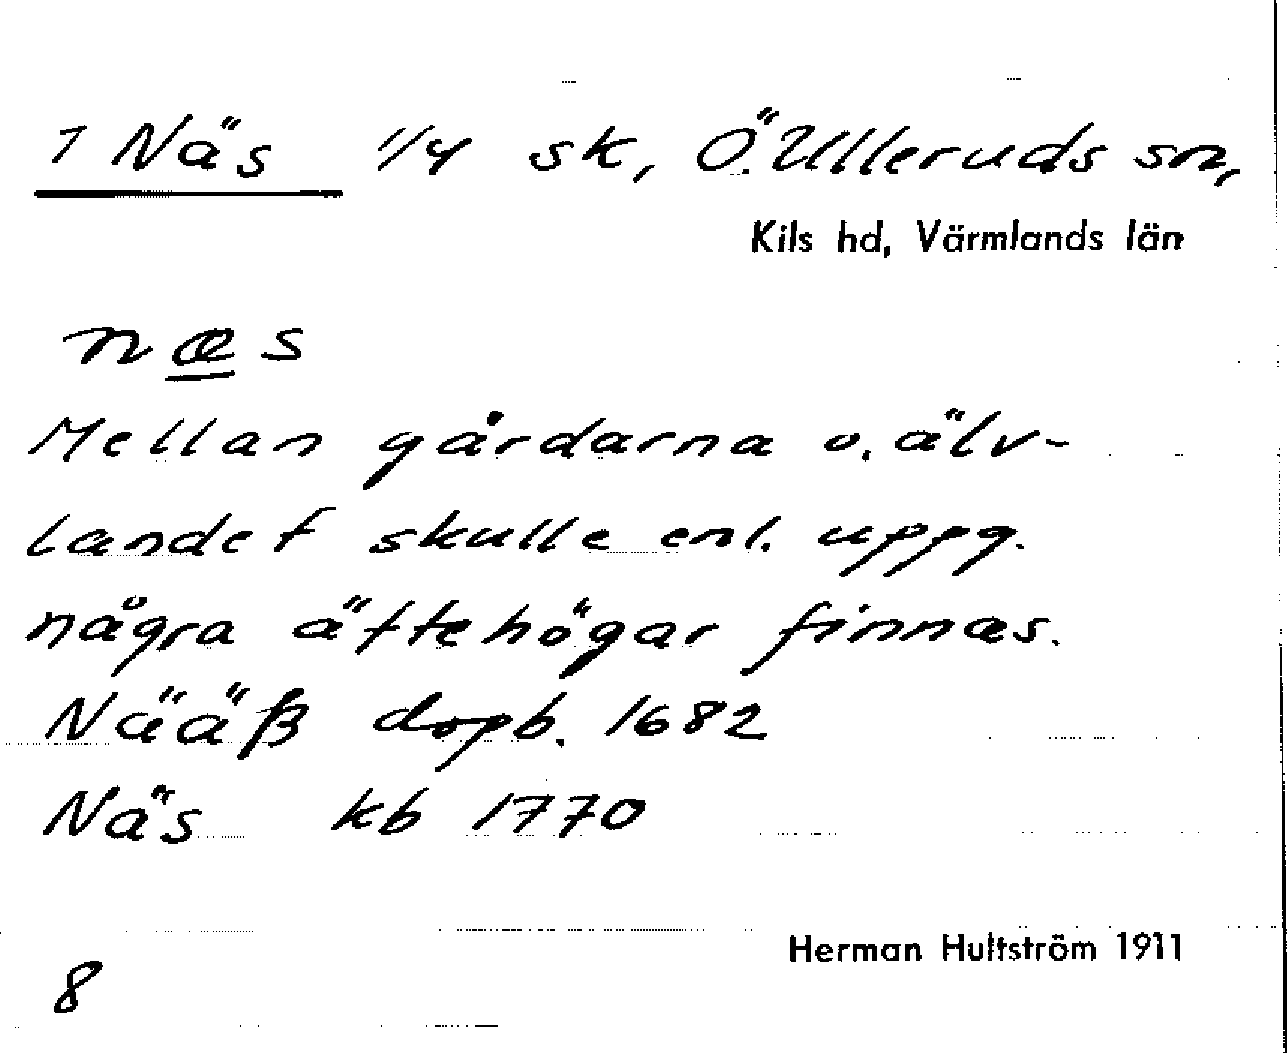 1 Näs 1/4 sk, Ö. Ulleruds sn,
Kils hd, Värmlands län
næs
Mellan gårdarna o. älv-
landet skulle enl. uppg.
några ättehögar finnas.
Nääß dopb. 1682
Näs kb 1770
Herman Hultström 1911
8